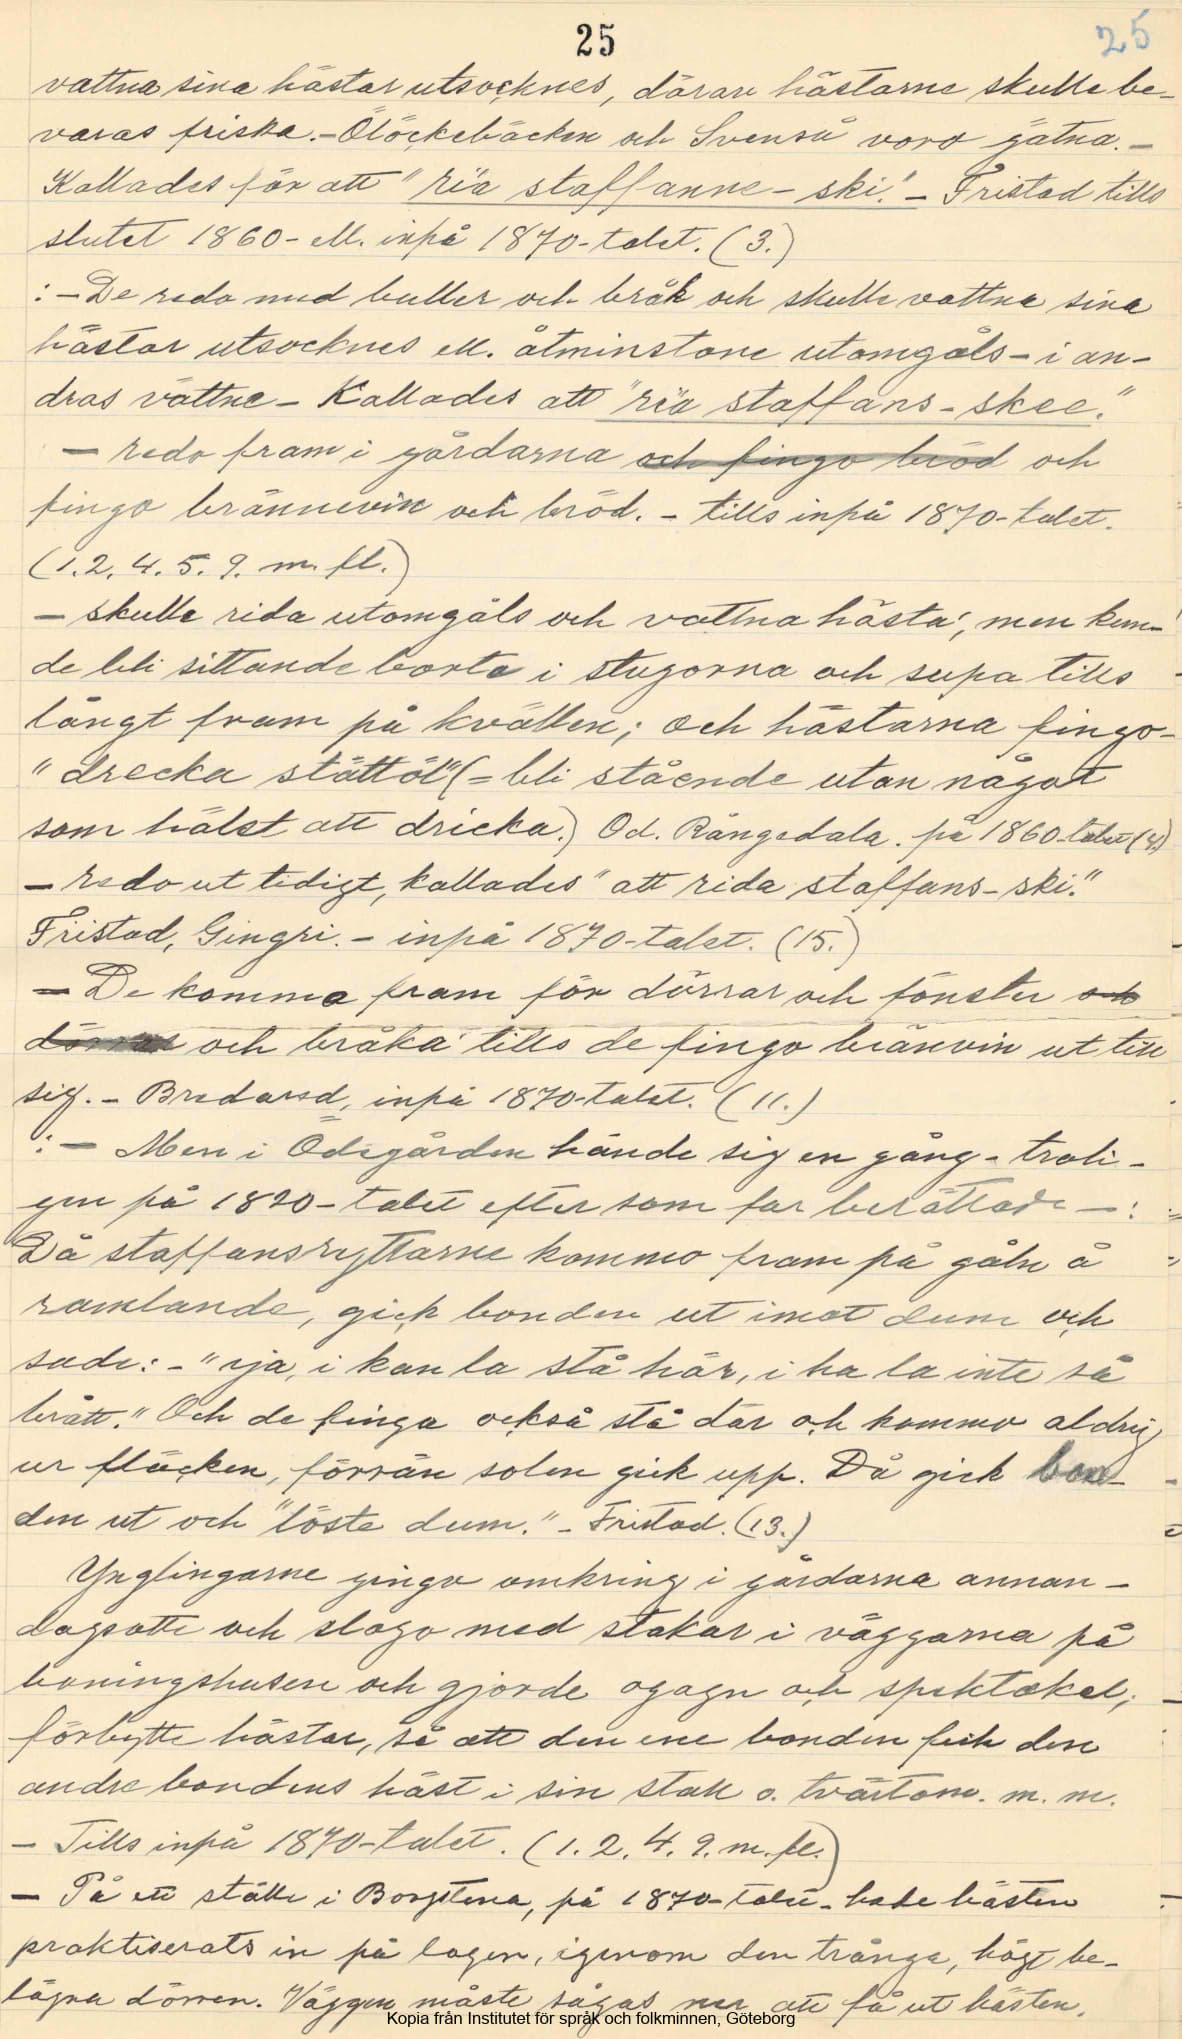 25
25
vattna sina hästar utsocknes, därav hästarne skulle be-
varas friska. - Ölöckebäcken och Svenså voro gätna. -
Kallades för att "ria staffanne - ski." - Fristad tills
slutet 1860 - ell. inpå 1870 - talet. (3.)
: - De redo med buller och bråk och skulle vattna sina
hästar utsocknes ell. åtminstone utomgåls - i an-
dras vattne - Kallades att "ria staffans - skee."
- redo fram i gårdarna och fingo bröd och
fingo brännevin och bröd. - tills inpå 1870 - talet.
(1. 2. 4. 5. 9. m. fl.)
- skulle rida utomgåls och vattna hästa', men kun-
de bli sittande borta i stugorna och supa tills
långt fram på kvällen; och hästarna fingo -
"drecka ställöl" (= bli stående utan något
som hälst att dricka.) Od. Rångedala. på 1860-talet (4.)
- redo ut tidigt, kallades "att rida staffans - ski."
Fristad, Gingri. - inpå 1870 - talet. (15.)
- De komma fram för dörrar och fönster och
dörrar och bråka tills de fingo bränvin ut till
sig. - Bredared, inpå 1870-talet. (11.)
: - Men i Ödegården hände sig en gång - troli-
gen på 1820 - talet efter som far berättade - :
Då staffansryttarne kommo fram på gåln å
ramlande, gick bonden ut imot dum och
sade: - "ja, i kan la stå här, i ha la inte så
brått." Och de finga också stå där och kommo aldrig
ur fläcken, förrän solen gick upp. Då gick bon-
den ut och "löste dum." - Fristad. (13.)
Ynglingarne gingo omkring i gårdarna annan-
dagsotte och slogo med stakar i väggarna på
boningshusen och gjorde ogagn och spektakel;
förbytte hästar, så att den ene bonden fick den
andre bondens häst i sin stall o. tvärtom. m. m.
- Tills inpå 1870 - talet. (1. 2. 4. 9. m. fl.)
- På ett ställe i Borgstena, på 1870 - talet - hade hästen
praktiserats in på logen, igenom den trånga, högt be-
lägna dörren. Väggen måste sågas ner att få ut hästen.
Kopia från Institutet för språk och folkminnen, Göteborg